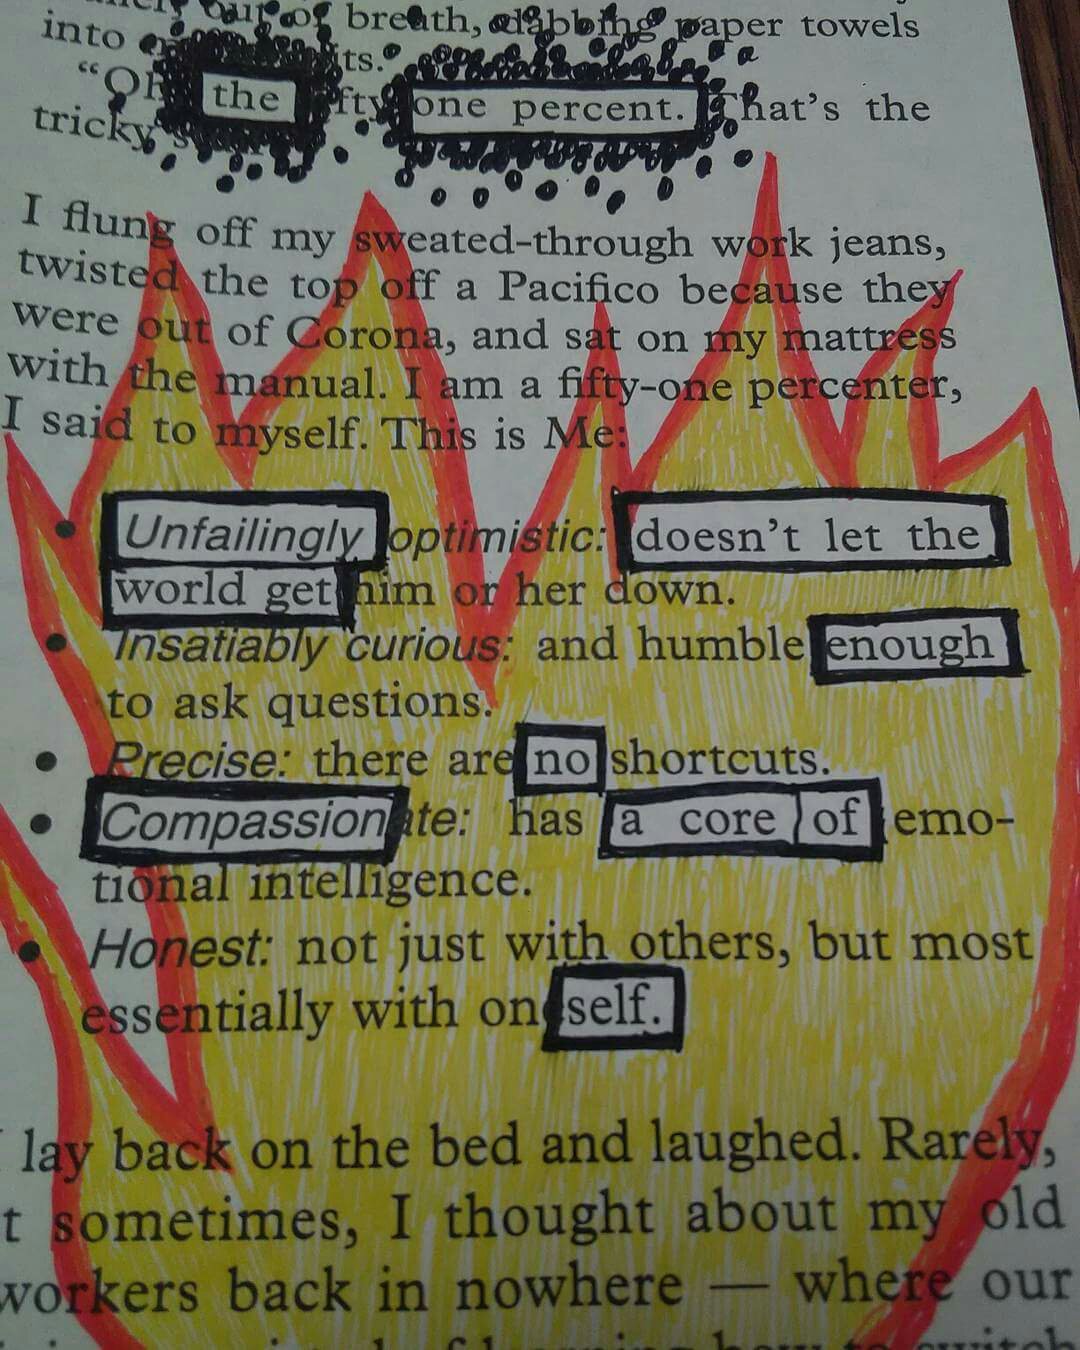 out of breath, dabbing paper towels
into its.
"Oh the fty one percent. That's the
tricky
I flung off my sweated-through work jeans,
twisted the top off a Pacifico because they
were out of Corona, and sat on my mattress
with the manual. I am a fifty-one percenter,
I said to myself. This is Me:
• Unfailingly optimistic: doesn't let the
world get him or her down.
• Insatiably curious: and humble enough
to ask questions.
• Precise: there are no shortcuts.
• Compassionate: has a core of emo-
tional intelligence.
• Honest: not just with others, but most
essentially with on self.
lay back on the bed and laughed. Rarely,
t sometimes, I thought about my old
workers back in nowhere — where our
how to switch